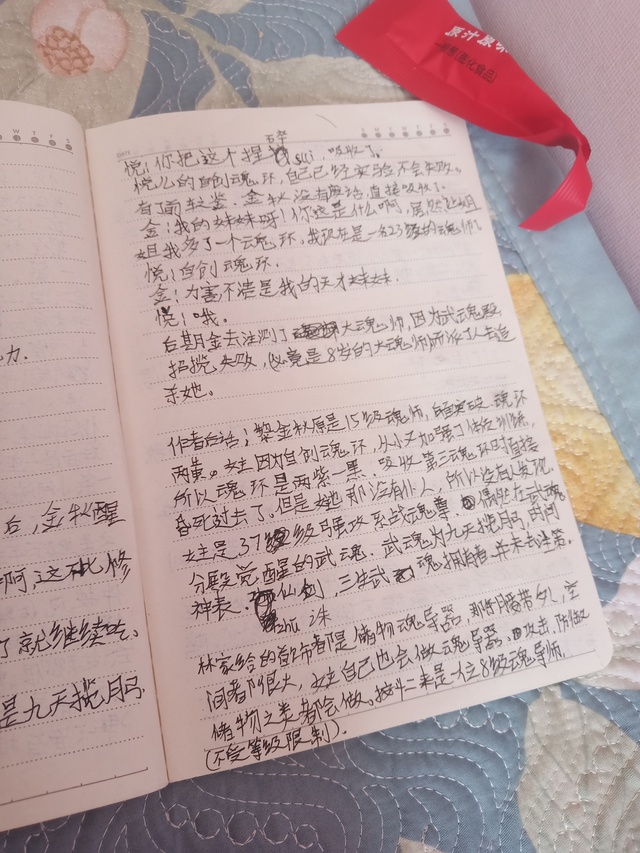 原汁原味
悦：你把这个捏碎sui，吸收了。
悦儿的自创魂环，自己已经实验不会失败。
有了前车之鉴，金秋没有废话，直接吸收了。
金：我的妹妹呀！你这是什么啊，居然让姐
姐我多了一个魂环，我现在是一名23级的魂师。
悦：自创魂环。
金：力害不愧是我的天才妹妹。
悦：哦。
后期金去注册了大魂师，因为武魂殿
招揽失败，(必竟是8岁的大魂师)所派了人去追
杀她。
作者后话；黎金秋原是15级魂师，突破 魂环
两黄。女主因为自创魂环，从小又加强了训练，
所以魂环是两紫一黑，吸收第三魂环时直接
昏死过去了，但是她那没有外人，所以没有人发现，
女主是37级强攻系战魂尊 偶然在武魂
分殿觉醒的武魂。武魂为九天揽月弓，时间
神表，仙剑，三生武魂拥有者 并未去注册。
zhu 珠
林家给的首饰都是储物魂导器，那些月腰带 空
间都很大，女主自己也会做魂导器。攻击，防御
储物之类都会做。按 来是一位8级魂导师，
(不受等级限制)。
力.
后，金秋醒
啊，这 比修
了就继续吃。
是九天揽月弓